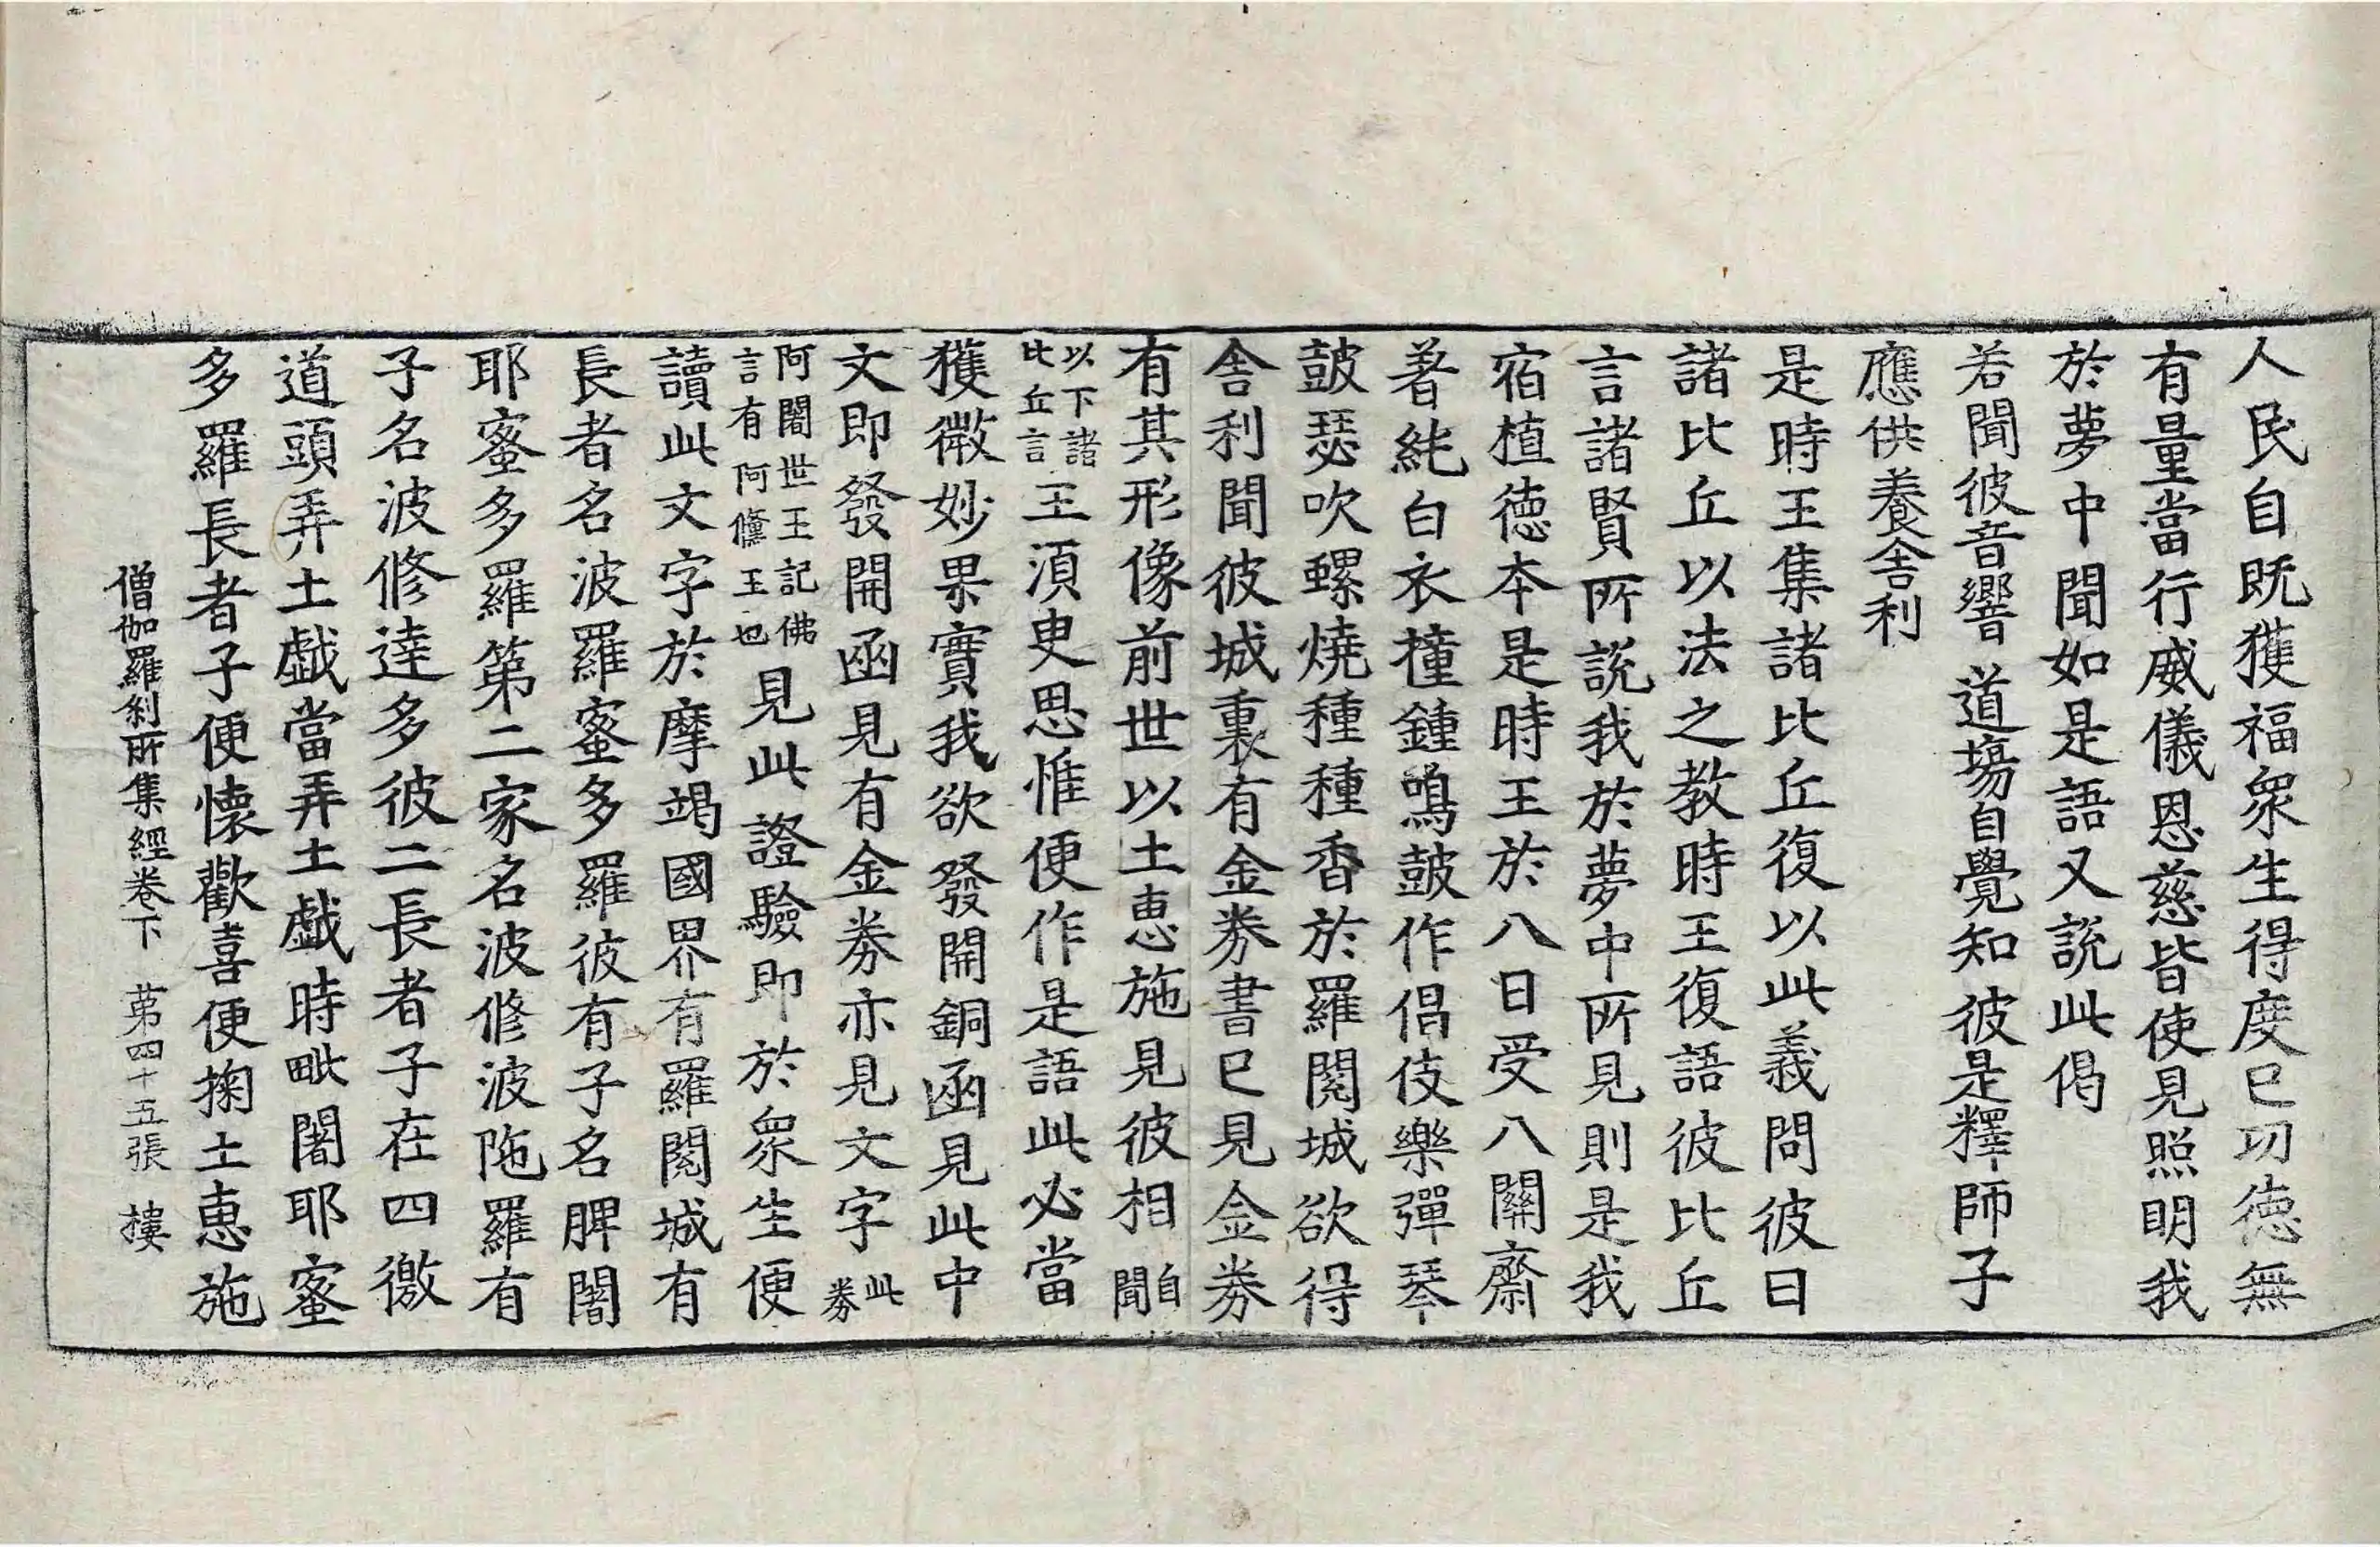 人民自既獲福衆生得度已功徳無
有量當行威儀恩慈皆使見照明我
於夢中聞如是語又說此偈
若聞彼音響 道場自覺知 彼是釋師子
應供養舍利
是時王集諸比丘復以此義問彼曰
諸比丘以法之教時王復語彼比丘
言諸賢所說我於夢中所見則是我
宿植徳本是時王於八日受八關齋
著純白衣撞鍾鳴鼓作倡伎樂彈琴
鼓瑟吹螺燒種種香於羅閱城欲得
舍利聞彼城裏有金券書已見金券
有其形像前世以土惠施見彼相自聞
以下諸比丘言王須臾思惟便作是語此必當
獲微妙果實我欲發開銅函見此中
文即發開函見有金券亦見文字此券
阿闍世王記佛言有阿儵王也見此證驗即於衆生便
讀此文字於摩竭國界有羅閱城有
長者名波羅蜜多羅彼有子名脾闍
耶蜜多羅第二家名波修波陁羅有
子名波修達多彼二長者子在四徼
道頭弄土戲當弄土戲時毗闍耶蜜
多羅長者子便懷歡喜便掬土惠施
僧伽羅刹所集經卷下 第四十五張 樓